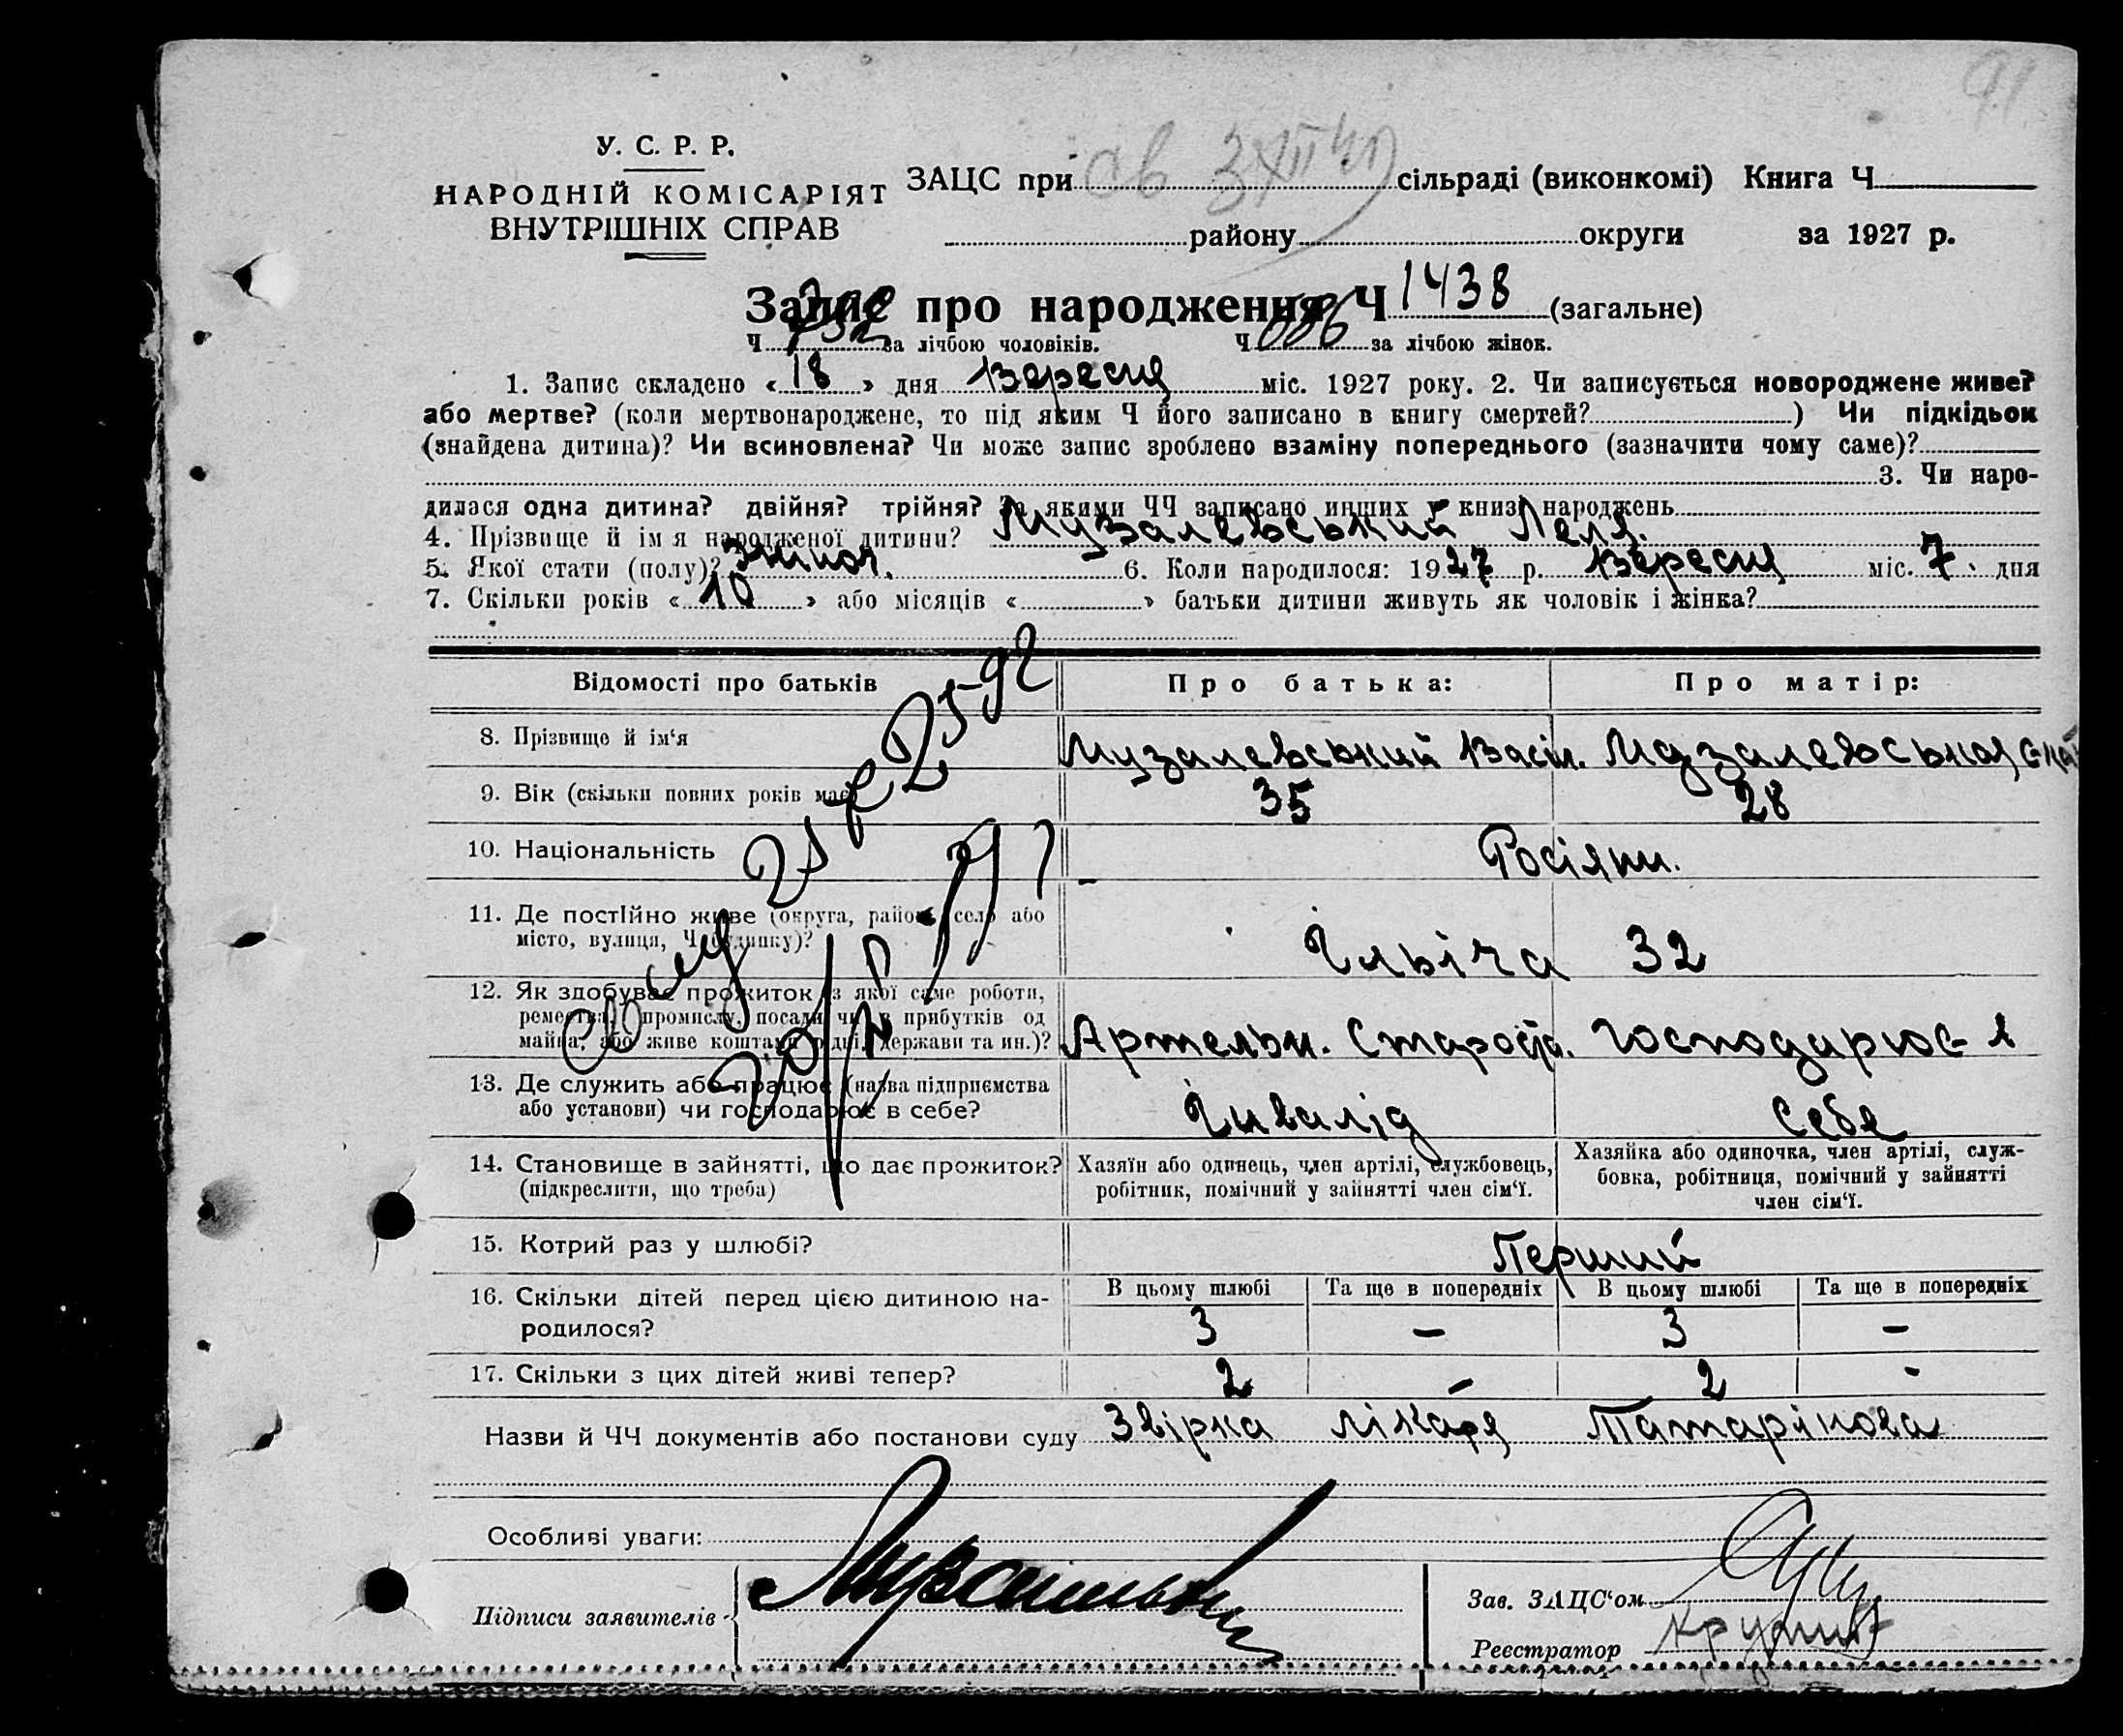 91
У. С. Р. Р.
НАРОДНІЙ КОМІСАРІЯТ
ВНУТРІШНІХ СПРАВ
ЗАЦС при св 3/XII 41 сільраді (виконкомі) Книга Ч
району округи за 1927 р.
Запис про народження Ч 1438 (загальне)
Ч 752 за лічбою чоловіків. Ч 686 за лічбою жінок.
1. Запис складено « 18 » дня вересня міс. 1927 року. 2. Чи записується новороджене живе?
або мертве? (коли мертвонароджене, то під яким Ч його записано в книгу смертей? ) Чи підкідьок
(знайдена дитина)? Чи всиновлена? Чи може запис зроблено взаміну попереднього (зазначити чому саме)?
3. Чи наро-
дилася одна дитина? двійня? трійня? За якими ЧЧ записано инших у книзі народжень
4. Прізвище й ім'я народженої дитини? Музалевський Леля.
5. Якої стати (полу)? жіноч. 6. Коли народилося: 1927 р. вересня міс. 7. дня
7. Скільки років « 10 » або місяців « » батьки дитини живуть як чоловік і жінка?
Відомості про батьків Про батька: Про матір:
8. Прізвище й ім'я Музалевський Васіл. Музалевська
9. Вік (скільки повних років має) 35 28
10. Національність Росіяни.
11. Де постійно живе (округа, район, село або
місто, вулиця, Ч будинку)? Ільіча 32
12. Як здобуває прожиток (з якої саме роботи,
ремества, промислу, посади чи з прибутків од
майна, або живе коштами рідні, держави та ин.)? Артельн. Староста. Господарює в
13. Де служить або працює (назва підприємства
або установи) чи господарює в себе? Інвалід себе
14. Становище в зайнятті, що дає прожиток?
(підкреслити, що треба)
Хазяїн або одинець, член артілі, службовець,
робітник, помічний у зайнятті член сім'ї.
Хазяйка або одиночка, член артілі, служ-
бовка, робітниця, помічний у зайнятті
член сім'ї.
15. Котрий раз у шлюбі? Перший
16. Скільки дітей перед цією дитиною на-
родилося?
В цьому шлюбі Та ще в попередніх В цьому шлюбі Та ще в попередніх
3 – 3 –
17. Скільки з цих дітей живі тепер? 2 – 2 -
Назви й ЧЧ документів або постанови суду Звірка лікаря Татарінова
Особливі уваги:
Підписи заявителів
Зав. ЗАЦС'ом
Реєстратор